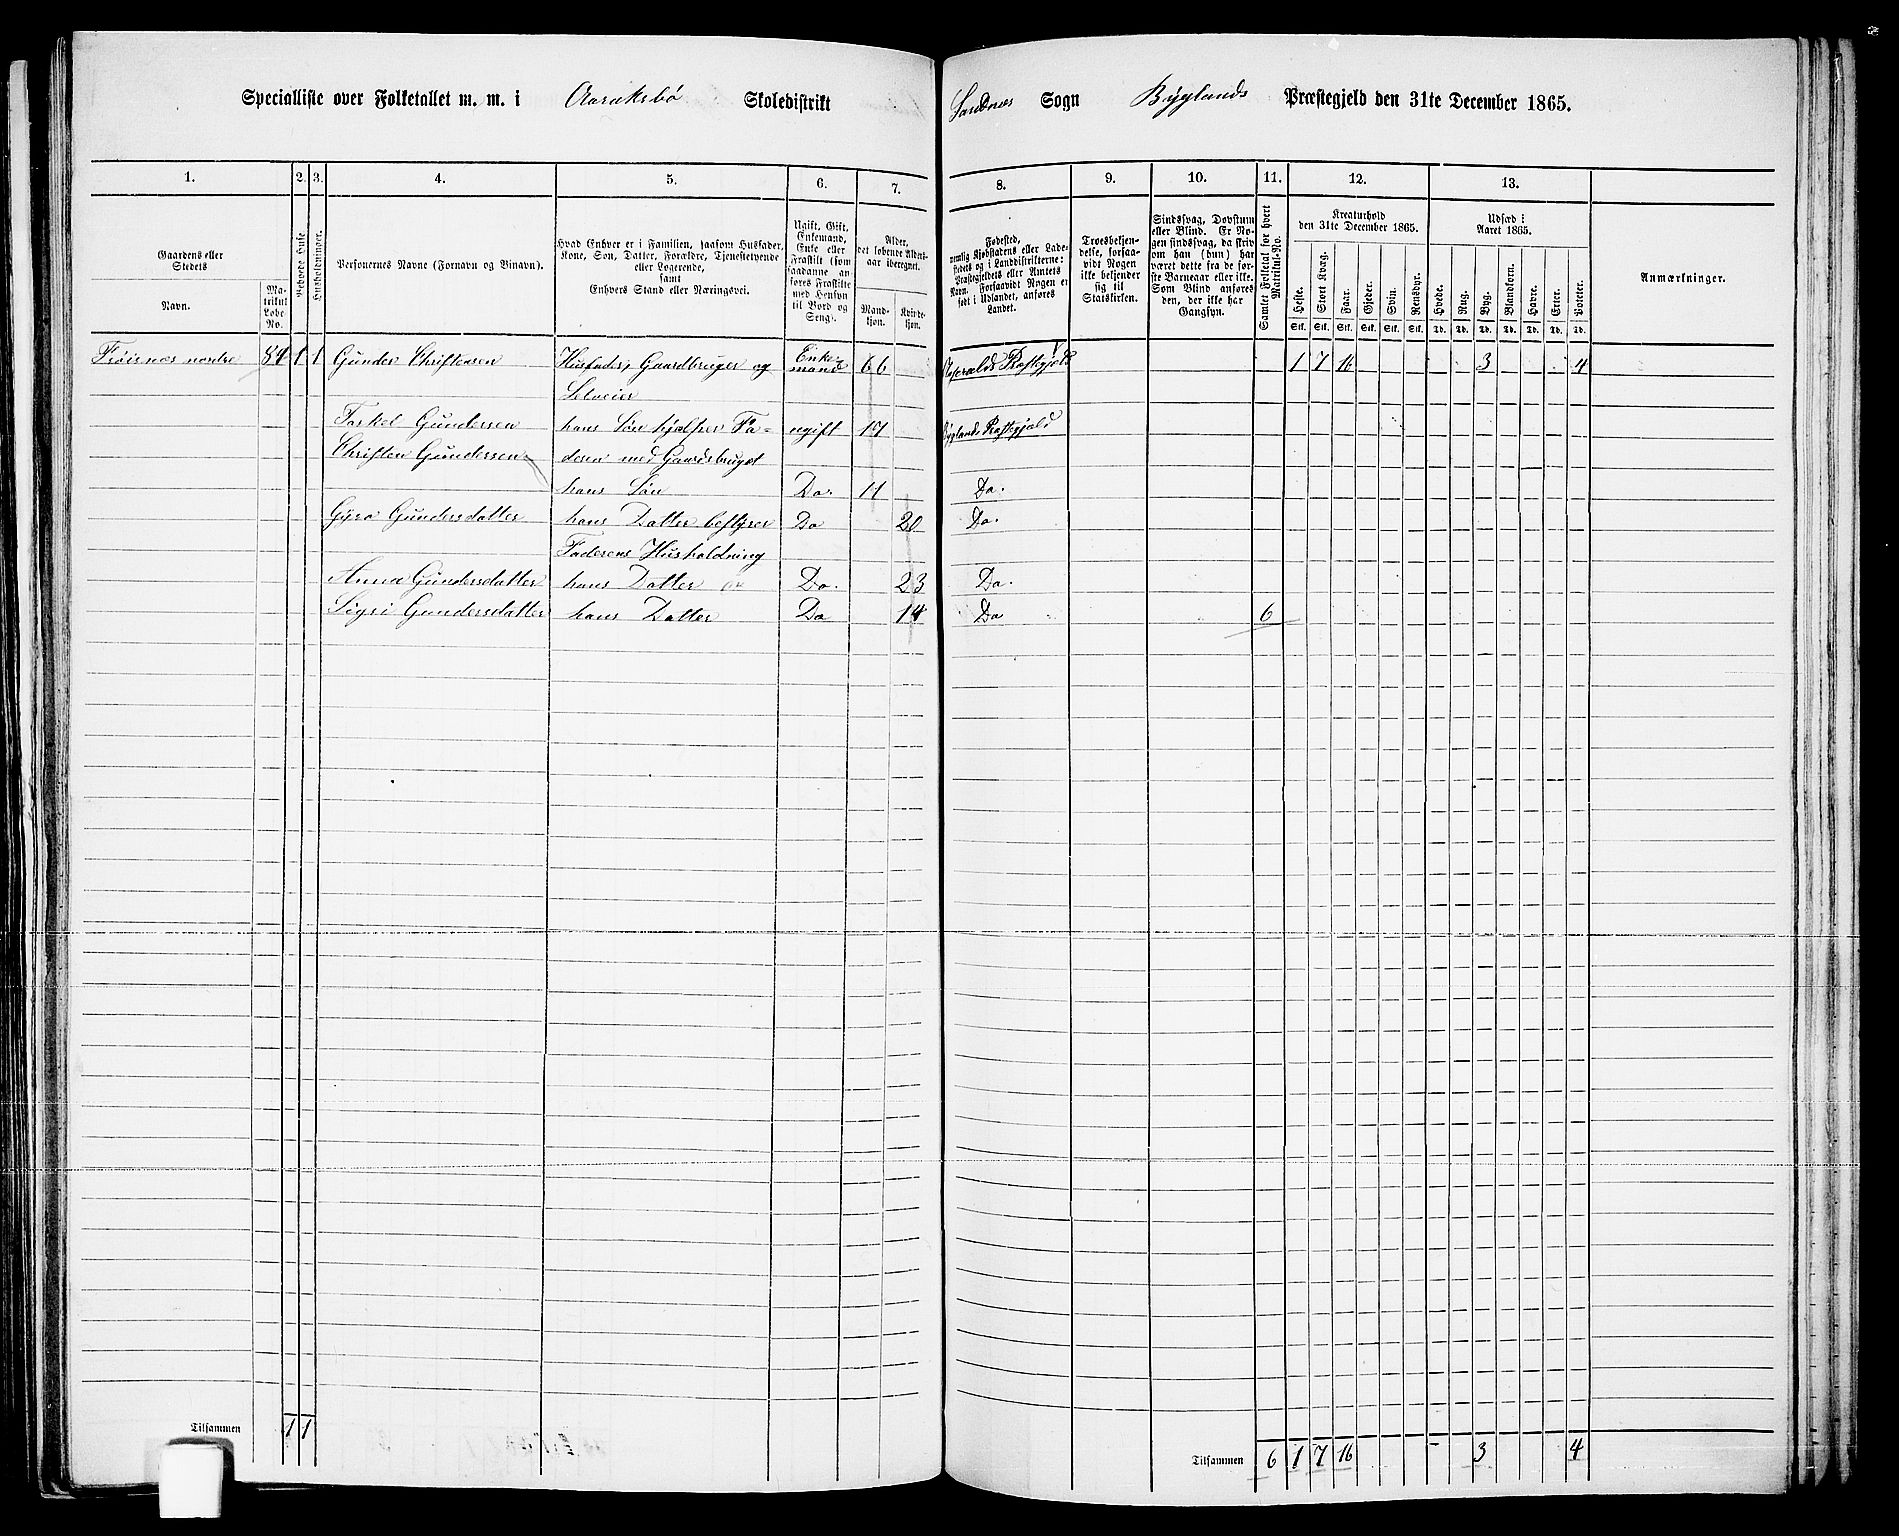 Specialliste over Folketallet m. m. i Aaraksbø Skoledistrikt
Sandnæs Sogn Byglands Præstegjeld den 31te December 1865.
1. 2. 3. 4. 5. 6. 7.
8. 9. 10. 11. 12. 13.
Gaardens eller Stedets
Navn.
Matrikul Løbe-No.
Beboede Huse.
Husholdninger.
Personernes Navne (Fornavn og Binavn).
Hvad Enhver er i Familien, saasom Husfader,
Kone, Søn, Datter, Forældre, Tjenestetyende
eller Logerende,
samt
Enhvers Stand eller Næringsvei.
Ugift, Gift,
Enkemand,
Enke eller
Fraskilt (som
saadanne anføres
Fraskilte
med Hensyn
til Bord og
Seng).
Alder,
det løbende Alders-
aar iberegnet.
Mand-
kjøn.
Kvinde-
kjøn.
Fødested,
nemlig Kjøbstadens eller Lade-
stedets og i Landdistrikterne:
Præstegjeldets eller Amtets
Navn. Forsaavidt Nogen er
født i Udlandet, anføres
Landet.
Troesbekjen-
delse, forsaa-
vidt Nogen
ikke bekjender
sig til
Statskirken.
Sindssvag, Døvstum
eller Blind. Er No-
gen sindssvag, da skriv
om han (hun) har
været dette fra de før-
ste Barneaar eller ikke.
Som Blind anføres
den, der ikke har
Gangsyn.
Samlet Folketal for hvert
Matrikul-No.
Kreaturhold
den 31te December 1865.
Heste. Stort Kvæg. Faar. Gjeder. Svin. Rensdyr.
Stk. Stk. Stk. Stk. Stk. Stk.
Udsæd i
Aaret 1865.
Hvede. Rug. Byg. Blandkorn. Havre. Erter. Poteter.
Td. Td. Td. Td. Td. Td. Td.
Anmærkninger.
Frøisnæs nordre 84 1 1 Gunder Christensen Husfader, Gaardbruger og Enke-mand 66 Præstegjeld 1 7 16 3 4
Selveier
Taskel Gundersen hans Søn hjælper Fa- ugift 17 Byglands Præstegjeld
Christen Gundersen deren med Gaardsbruget
hans Søn Do. 11 Do.
Gyro Gundersdatter hans Datter bestyrer Do 20 Do.
Faderens Husholdning
Anna Gundersdatter hans Datter Do. 23 Do.
Sigri Gundersdatter hans Datter Do 14 Do 6
Tilsammen 1 1
Tilsammen 6 1 7 16 - 3 4